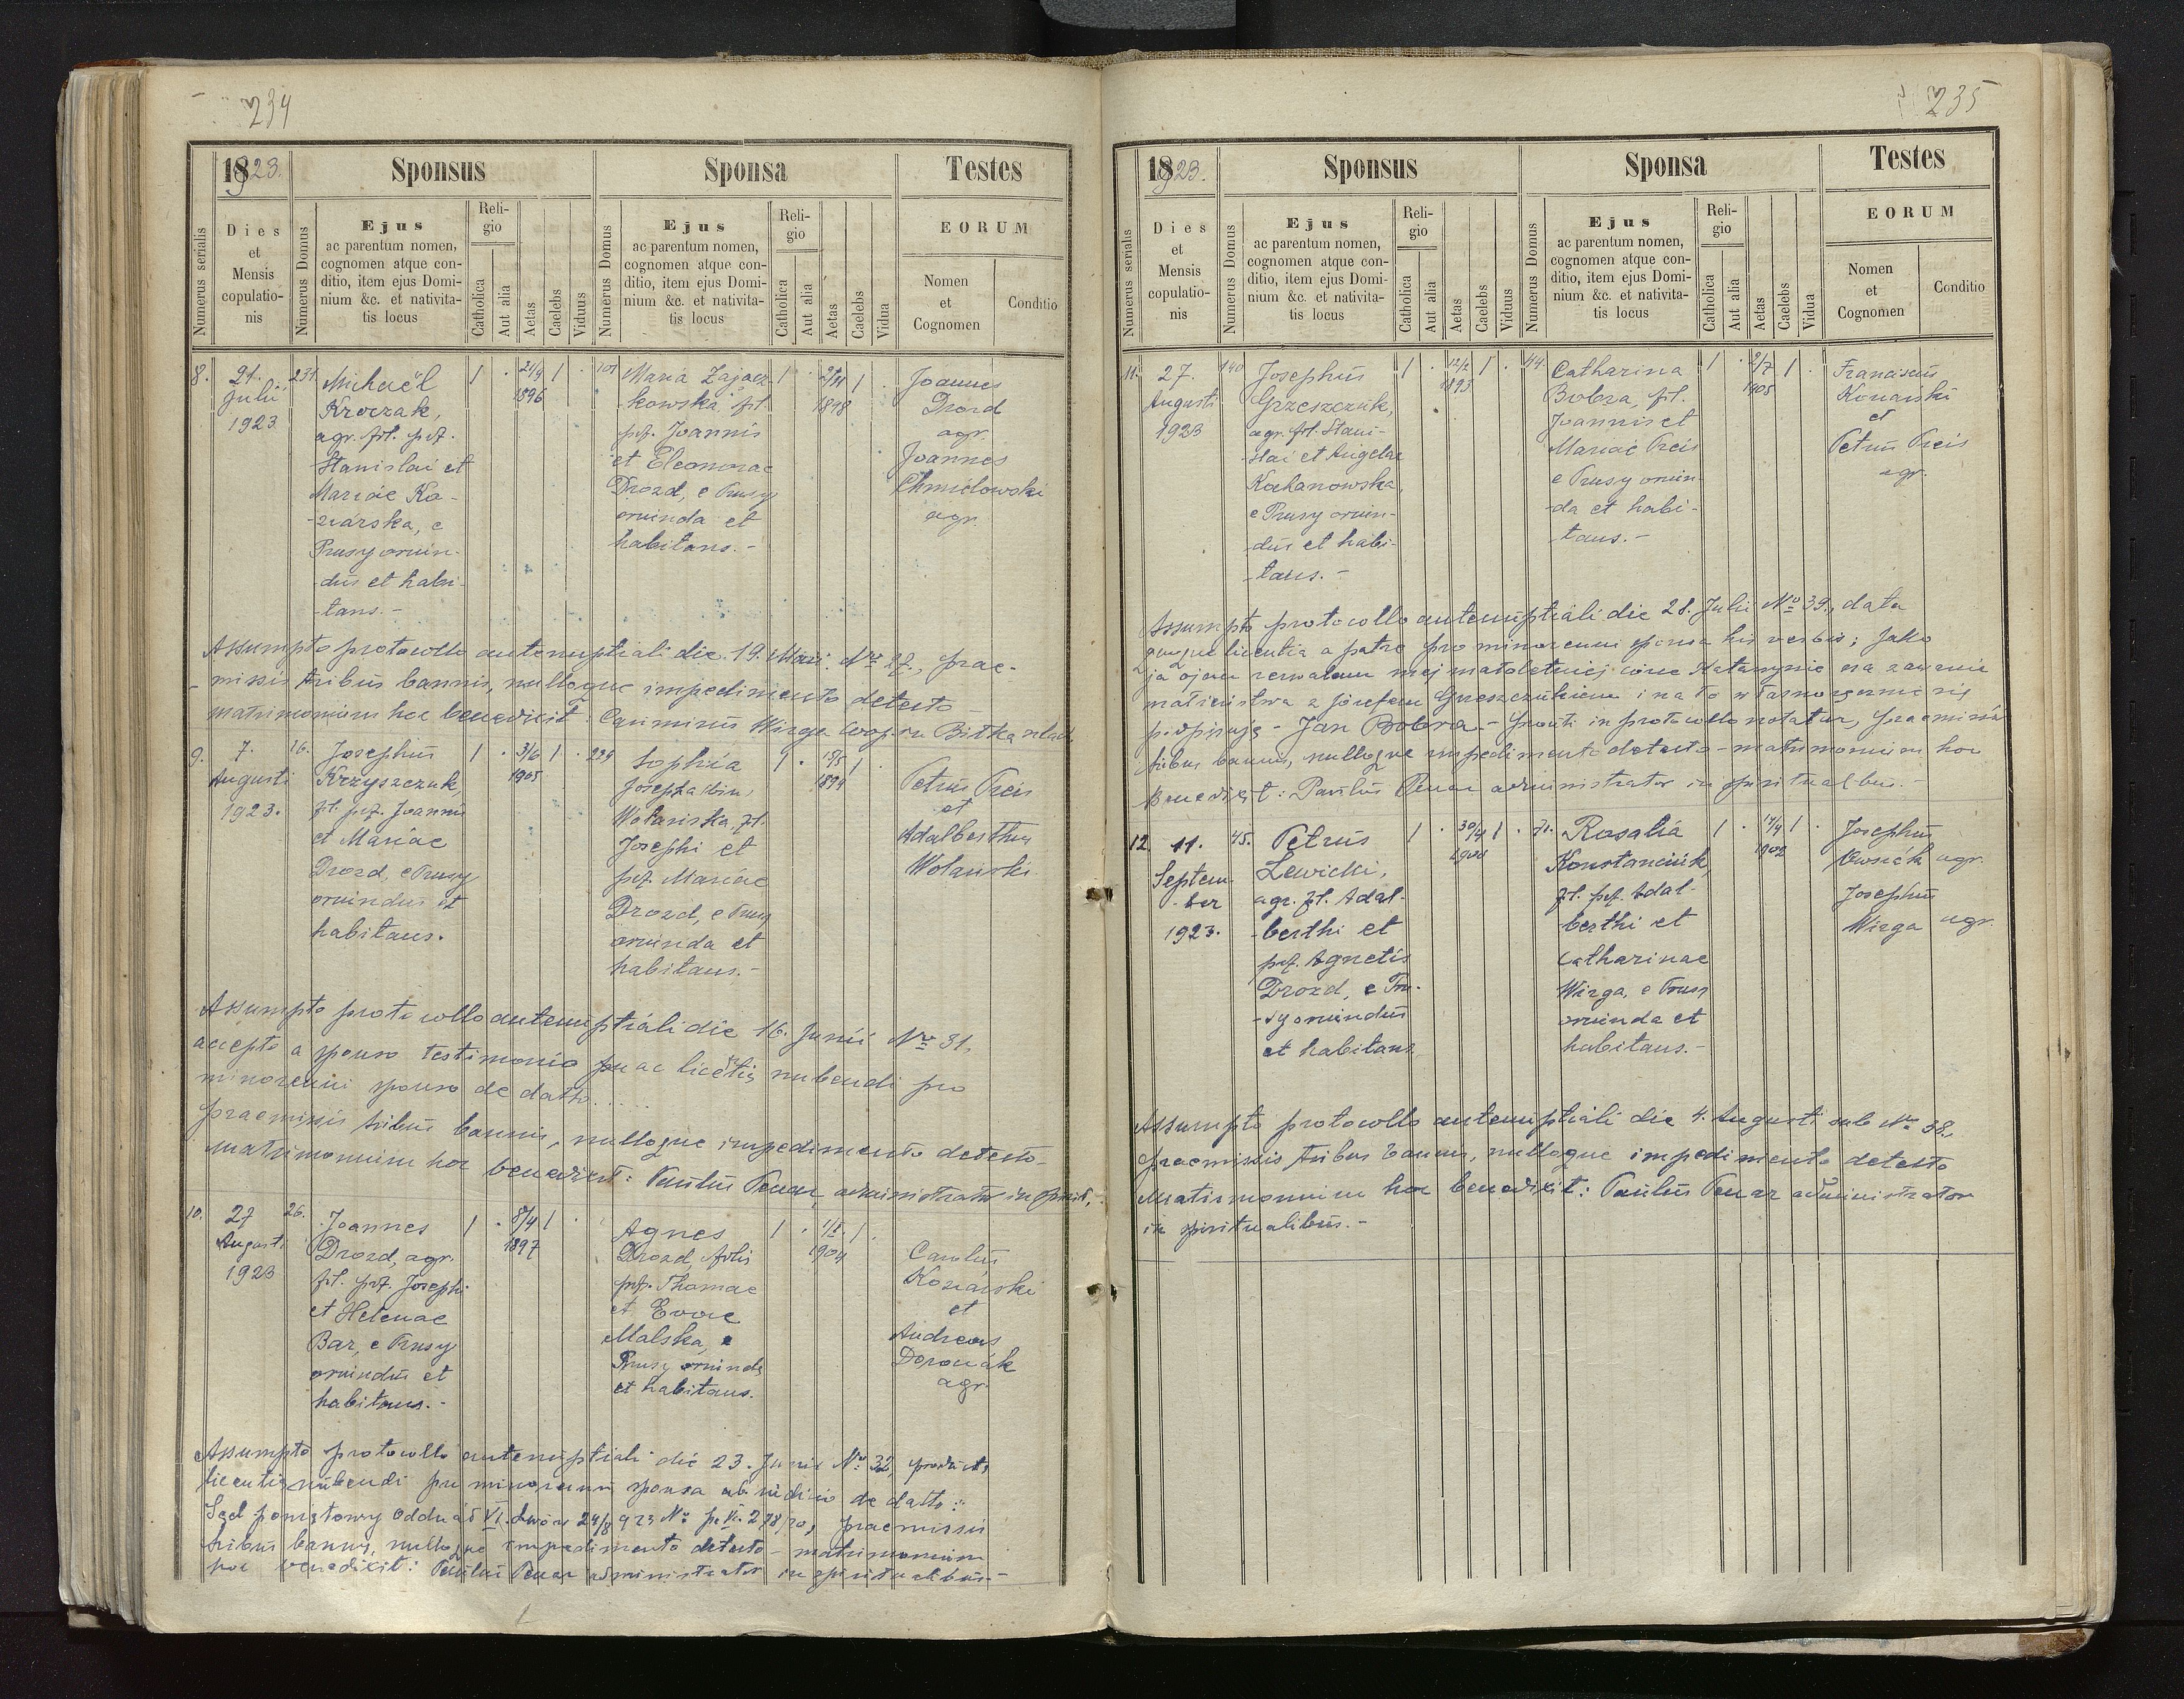 234
1923.
Sponsus
Sponsa
Testes
Numerus serialis
Dies
et
Mensis
copulatio-
nis
Numerus Domus
Ejus
ac parentum nomen,
cognomen atque con-
ditio, item ejus Domi-
nium &c. et nativita-
tis locus
Reli-
gio
Catholica
Aut alia
Aetas
Caelebs
Viduus
Numerus Domus
Ejus
ac parentum nomen,
cognomen atque con-
ditio, item ejus Domi-
nium &c. et nativita-
tis locus
Reli-
gio
Catholica
Aut alia
Aetas
Caelebs
Vidua
EORUM
Nomen
et
Cognomen
Conditio
8.
21.
Julii
1923
231
Michaël
Kroczak,
agr. fil. pdf.
Stanislai et
Mariae Ko-
-ziarska, e
Prusy oriun-
dus et habi-
-tans.-
1 . 21/9 1 .
1896
101
Maria Zając
kowska, fil.
pdf. Joannis
et Eleonorae
Drozd, e Prusy
oriunda et
habitans.-
1 . 2/11 1 .
1898
Joannes
Drozd
agr.
Joannes
Chmielowski
agr.
Assumpto protocollo antenuptiali die 19. Maii. Nro 27., prae-
-missis tribus bannis, nulloque impedimento detecto -
matrimonium hoc benedixit: Casimirus Wirga coop. in Bitka
9.
7.
Augusti
1923.
16.
Josephus
Krzyszczuk
fil. pdf. Joannis
et Mariae
Drozd, e Prusy
oriundus et
habitans.
1 . 3/6 1 .
1905
239
Sophia
Josepha (bin)
Wolanska, fil.
Josephi et
pdf. Mariae
Drozd, e Prusy
oriunda et
habitans.-
1 . 15/5 1
1899
Petrus Preis
et
Adalberthus
Wolanski
Assumpto protocollo antenuptiali die 16. Junii Nro 31,
accepto a sponso testimonio licentia nubendi pro
minorenni sponso de datto.....
praemissis tribus bannis, nulloque impedimento detecto -
matrimonium hoc benedixit: Paulus Penar, administrator in spirit.
10.
27
Augusti
1923
26.
Joannes
Drozd, agr.
fil. pdf. Josephi
et Helenae
Bar, e Prusy
oriundus et
habitans.-
1 . 8/4 1 .
1897
Agnes
Drozd, filia
pdf. Thomae
et Evae
Malska, e
Prusy oriunda
et habitans.
1 . 1/1. 1 .
1904
Carolus
Koziarski
et
Andreas
Doroziak
agr.
Assumpto protocollo antenuptiali die 23. Junii Nro 32, producta
licentia nubendi pro minorenni sponsa ab iudicio de datto:
Sąd powiatowy Oddział VI. Lwów 24/8 923 No P. VI. 298/20, praemissis
tribus bannis, nulloque impedimento detecto - matrimonium
hoc benedixit: Paulus Penar administrator in spiritualibus.-
235
1923.
Sponsus
Sponsa
Testes
Numerus serialis
Dies
et
Mensis
copulatio-
nis
Numerus Domus
Ejus
ac parentum nomen,
cognomen atque con-
ditio, item ejus Domi-
nium &c. et nativita-
tis locus
Reli-
gio
Catholica
Aut alia
Aetas
Caelebs
Viduus
Numerus Domus
Ejus
ac parentum nomen,
cognomen atque con-
ditio, item ejus Domi-
nium &c. et nativita-
tis locus
Reli-
gio
Catholica
Aut alia
Aetas
Caelebs
Vidua
EORUM
Nomen
et
Cognomen
Conditio
11.
27.
Augusti
1923
140
Josephus
Grzeszczuk,
agr. fil. Stani-
slai et Angelae
Kochanowska,
e Prusy oriun-
dus et habi-
-tans.-
1 . 12/2 1 .
1893
44.
Catharina
Bobra, fil.
Joannis et
Mariae Preis
e Prusy oriun-
-da et habi-
-tans.-
1 . 2/7 1 .
1905
Franciscus
Konarski
et
Petrus Preis
agr.
Assumpto protocollo antenuptiali die 28. Julii Nro 39., data
quoque licentia a patre pro minorenni sponsa his verbis: Jako
ja ojciec zezwalam mej małoletniej córce Katarzynie na zawarcie
małżeństwa z Józefem Grzeszczukiem i na to własnoręcznie się
podpisuję - Jan Bobra - prouti in protocollo notatur, praemissis
tribus bannis, nulloque impedimento detecto - matrimonium hoc
benedixit: Paulus Penar administrator in spiritualibus.-
12.
11.
Septem-
-ber
1923.
45.
Petrus
Lewicki,
agr. fil. Adal-
-berthi et
pdf. Agnetis
Drozd, e Pru-
-sy oriundus
et habitans
1 . 30/4 1 .
1900
71.
Rosalia
Konstanciuk,
fil. pdf. Adal-
berthi et
Catharinae
Wirga, e Prusy
oriunda et
habitans.-
1 . 17/4 1 .
1902
Josephus
Owsiak agr.
Josephus
Wirga agr.
Assumpto protocollo antenuptiali die 4. Augusti sub Nro 38.,
praemissis tribus bannis, nulloque impedimento detecto
matrimonium hoc benedixit: Paulus Penar administrator
in spiritualibus.-